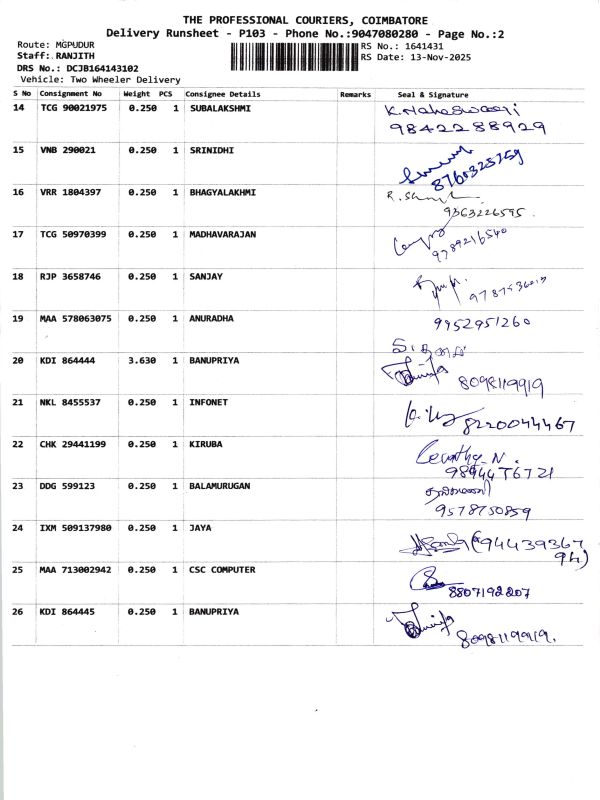 THE PROFESSIONAL COURIERS, COIMBATORE
Delivery Runsheet - P103 - Phone No.:9047080280 - Page No.:2
Route: MGPUDUR
Staff: RANJITH
DRS No.: DCJB164143102
Vehicle: Two Wheeler Delivery
RS No.: 1641431
RS Date: 13-Nov-2025
S No Consignment No Weight PCS Consignee Details Remarks Seal & Signature
14 TCG 90021975 0.250 1 SUBALAKSHMI K. Maheswari
9842288929
15 VNB 290021 0.250 1 SRINIDHI
8760325759
16 VRR 1804397 0.250 1 BHAGYALAKHMI
9363226595
17 TCG 50970399 0.250 1 MADHAVARAJAN
9789216540
18 RJP 3658746 0.250 1 SANJAY
19 MAA 578063075 0.250 1 ANURADHA 9952951260
20 KDI 864444 3.630 1 BANUPRIYA
8098119919
21 NKL 8455537 0.250 1 INFONET
8220044467
22 CHK 29441199 0.250 1 KIRUBA
23 DDG 599123 0.250 1 BALAMURUGAN
9578750859
24 IXM 509137980 0.250 1 JAYA
25 MAA 713002942 0.250 1 CSC COMPUTER
8807192207
26 KDI 864445 0.250 1 BANUPRIYA
8098119919.